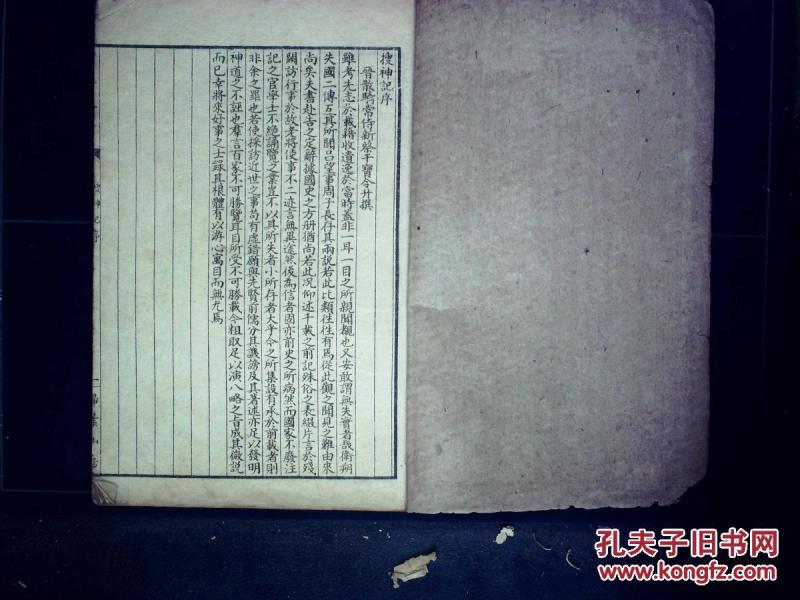 搜神記序
晉散騎常侍新蔡干寶令升撰
雖考先志於載籍收遺逸於當時蓋非一耳一目之所親聞覩也又安敢謂無失實者哉衛朔
失國二傳互其所聞呂望事周子長存其兩說若此比類往往有焉從此觀之聞見之難由來
尚矣夫書赴告之定辭據國史之方册猶尚若此況仰述千載之前記殊俗之表綴片言於殘
闕訪行事於故老將使事不二迹言無異途然後為信者固亦前史之所病然而國家不廢注
記之官學士不絕誦覽之業豈不以其所失者小所存者大乎今之所集設有承於前載者則
非余之罪也若使採訪近世之事苟有虛錯願與先賢前儒分其譏謗及其著述亦足以發明
神道之不誣也羣言百家不可勝覽耳目所受不可勝載今粗取足以演八略之旨成其微說
而已幸將來好事之士錄其根體有以游心寓目而無尤焉
搜神記序
一
掃葉山房
孔夫子旧书网
www.kongfz.com